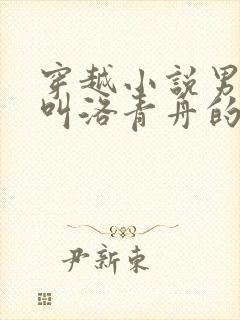 穿越小说男
叫洛青丹的
尹新东